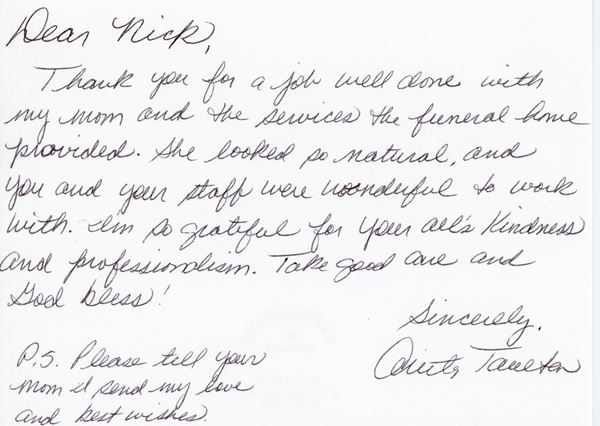 Dear Nick,
Thank you for a job well done with
my mom and the services the funeral home
provided. She looked so natural, and
you and your staff were wonderful to work
with. I'm so grateful for your all's kindness
and professionalism. Take good care and
God bless!
Sincerely,
P.S. Please tell your
mom I send my love
and best wishes.